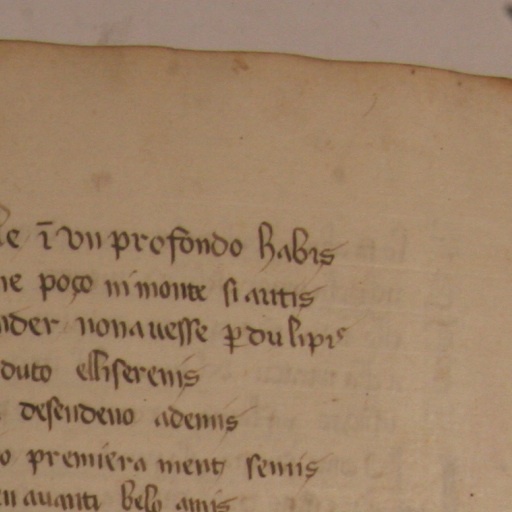 ı̄ vn profondo habis
poço ni monte si antis
nonauesse ꝑdu lipis
duto elliserenis
desendeno ademis
premiera ment senis
auanti belo amis